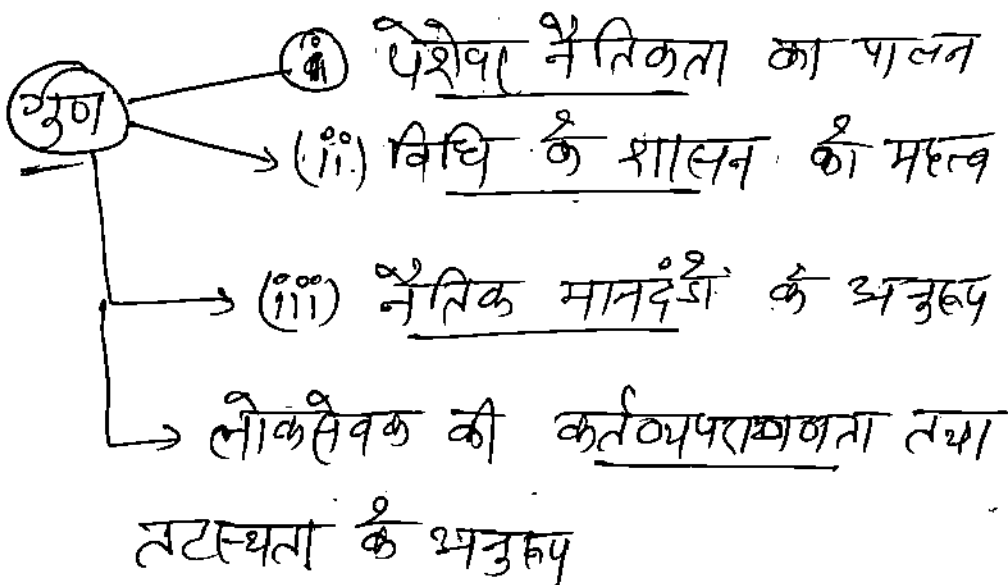 गुण
(i) पेशेवर नैतिकता का पालन
(ii) विधि के शासन को महत्व
(iii) नैतिक मानदंडों के अनुरूप
लोकसेवक की कर्तव्यपरायणता तथा
तटस्थता के अनुरूप